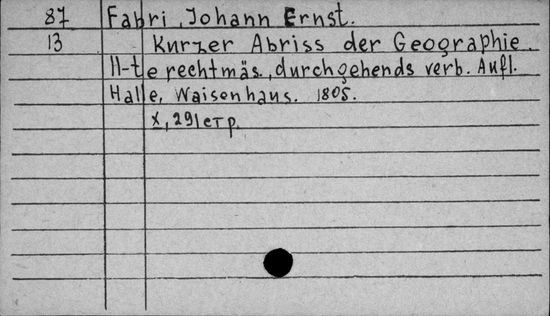 87 Fabri, Johann Ernst.
13 Kurzer Abriss der Geographie.
11-te rechtmäs., durchgehends verb. Aufl.
Halle, Waisenhaus. 1805.
X, 291 стр.